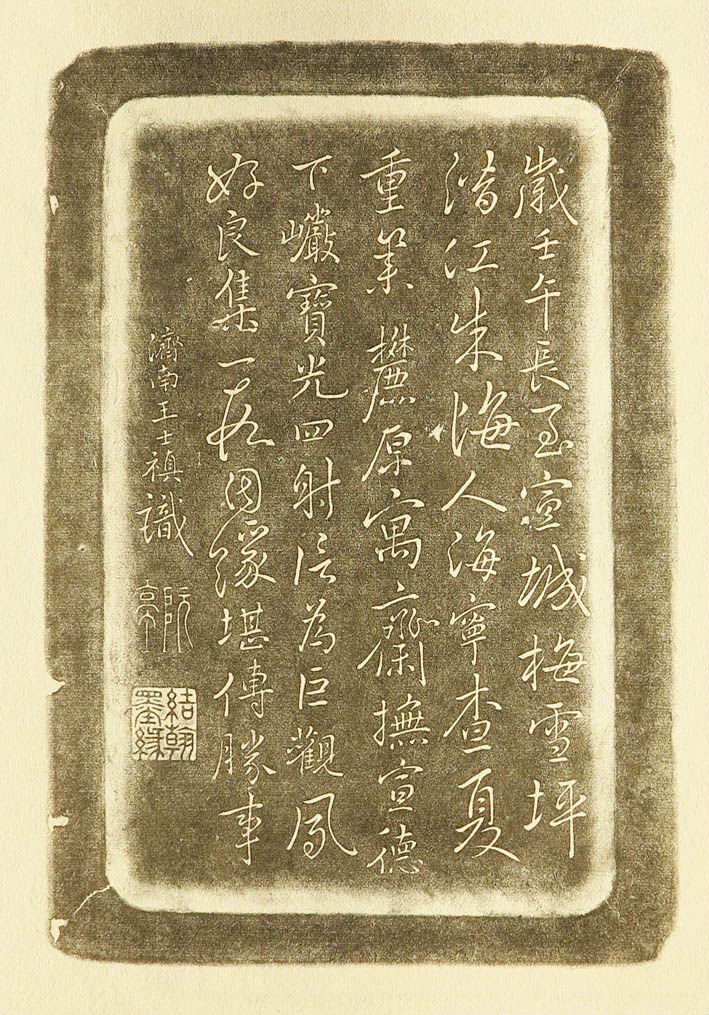 歲壬午長至宣城梅雪坪
潛江朱悔人海寧查夏
重集麓原寓齋撫宣德
下巖寶光四射洵為巨觀夙
好良集一大因緣堪傳勝事
濟南王士禎識
阮亭
結翰墨緣